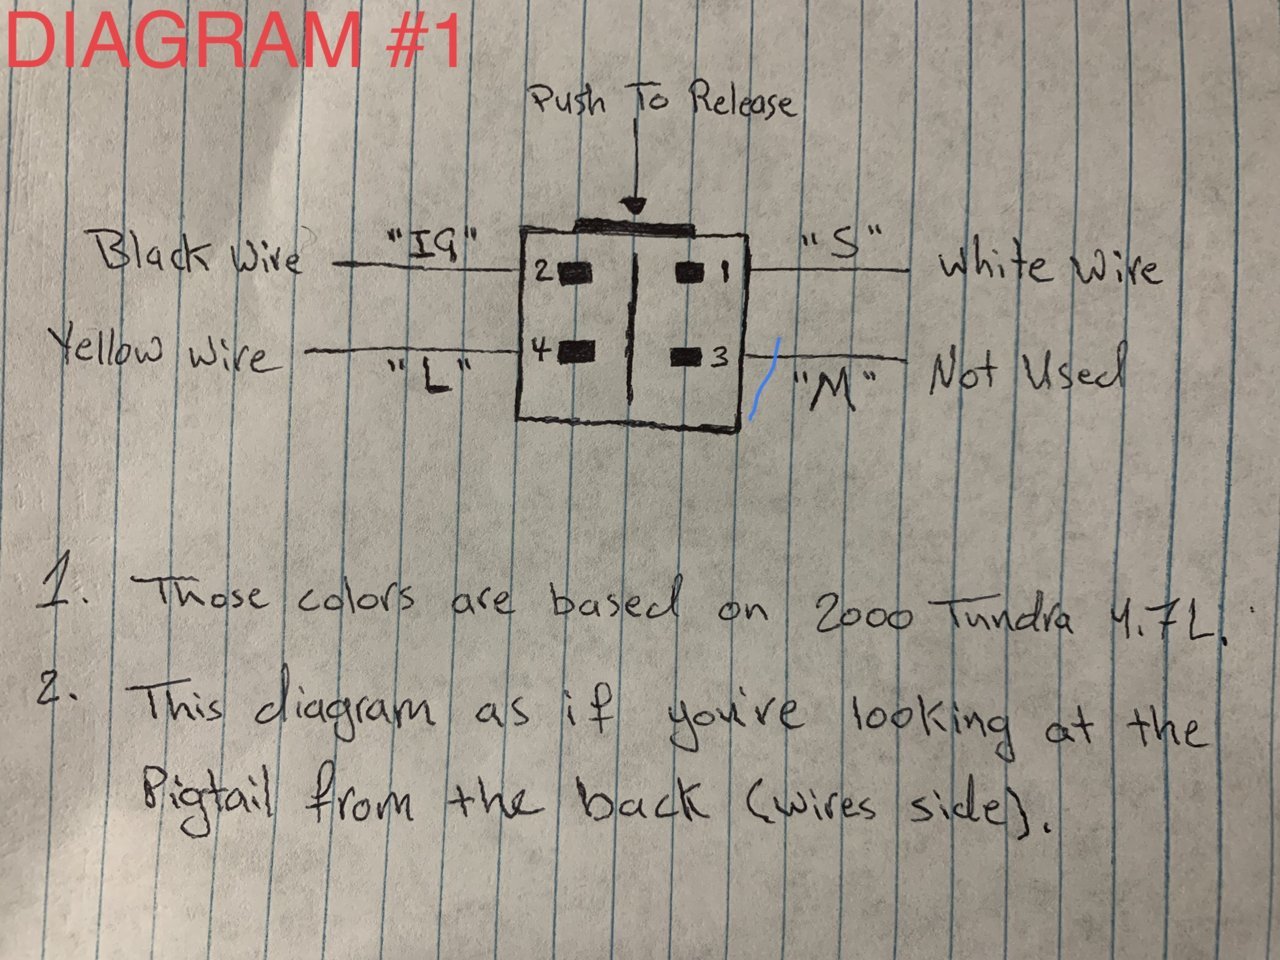 DIAGRAM #1
Push To Release
Black Wire "IG" 2 1 "S" White Wire
Yellow Wire "L" 4 3 "M" Not Used
1. Those colors are based on 2000 Tundra 4.7L.
2. This diagram as if you're looking at the
Pigtail from the back (wires side).